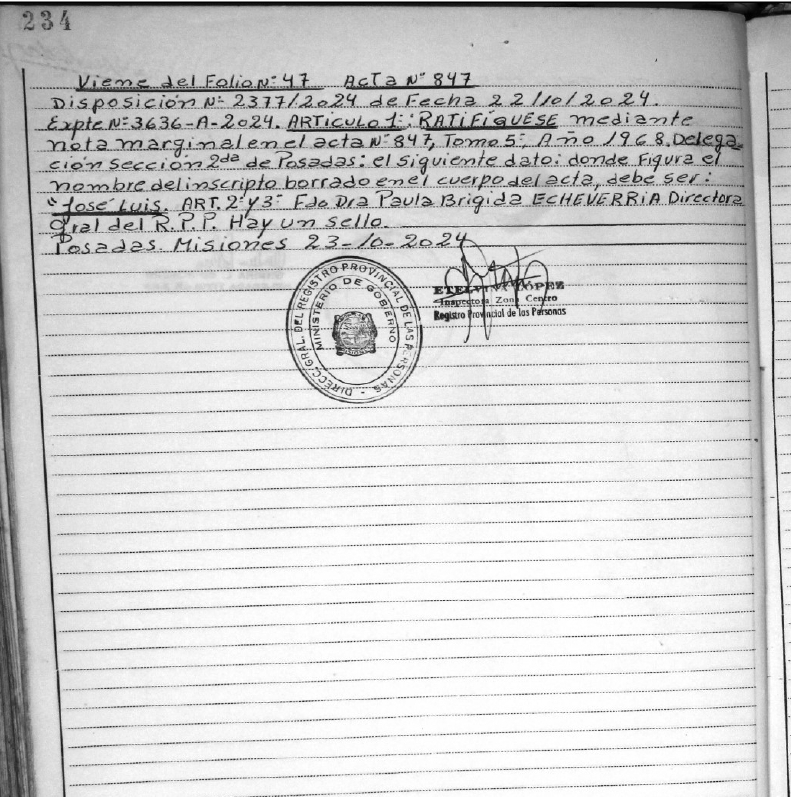 234
Viene del Folio Nº 47 Acta Nº 847
Disposición Nº 2377/2024 de Fecha 22/10/2024.
Expte Nº 3636-A-2024. ARTICULO 1º: RATIFIQUESE mediante
nota marginal en el acta Nº 847, Tomo 5º, Año 1968. Delega-
ción sección 2da de Posadas: el siguiente dato: donde Figura el
nombre del inscripto borrado en el cuerpo del acta, debe ser:
"José Luis. ART. 2º y 3º Fdo Dra Paula Brigida ECHEVERRIA Directora
Gral del R.P.P. Hay un sello.
Posadas. Misiones 23-10-2024
DIRECC. GRAL. DEL REGISTRO PROVINCIAL DE LAS PERSONAS -
MINISTERIO DE GOBIERNO
ETELVINA LOPEZ
Inspectora Zona Centro
Registro Provincial de las Personas